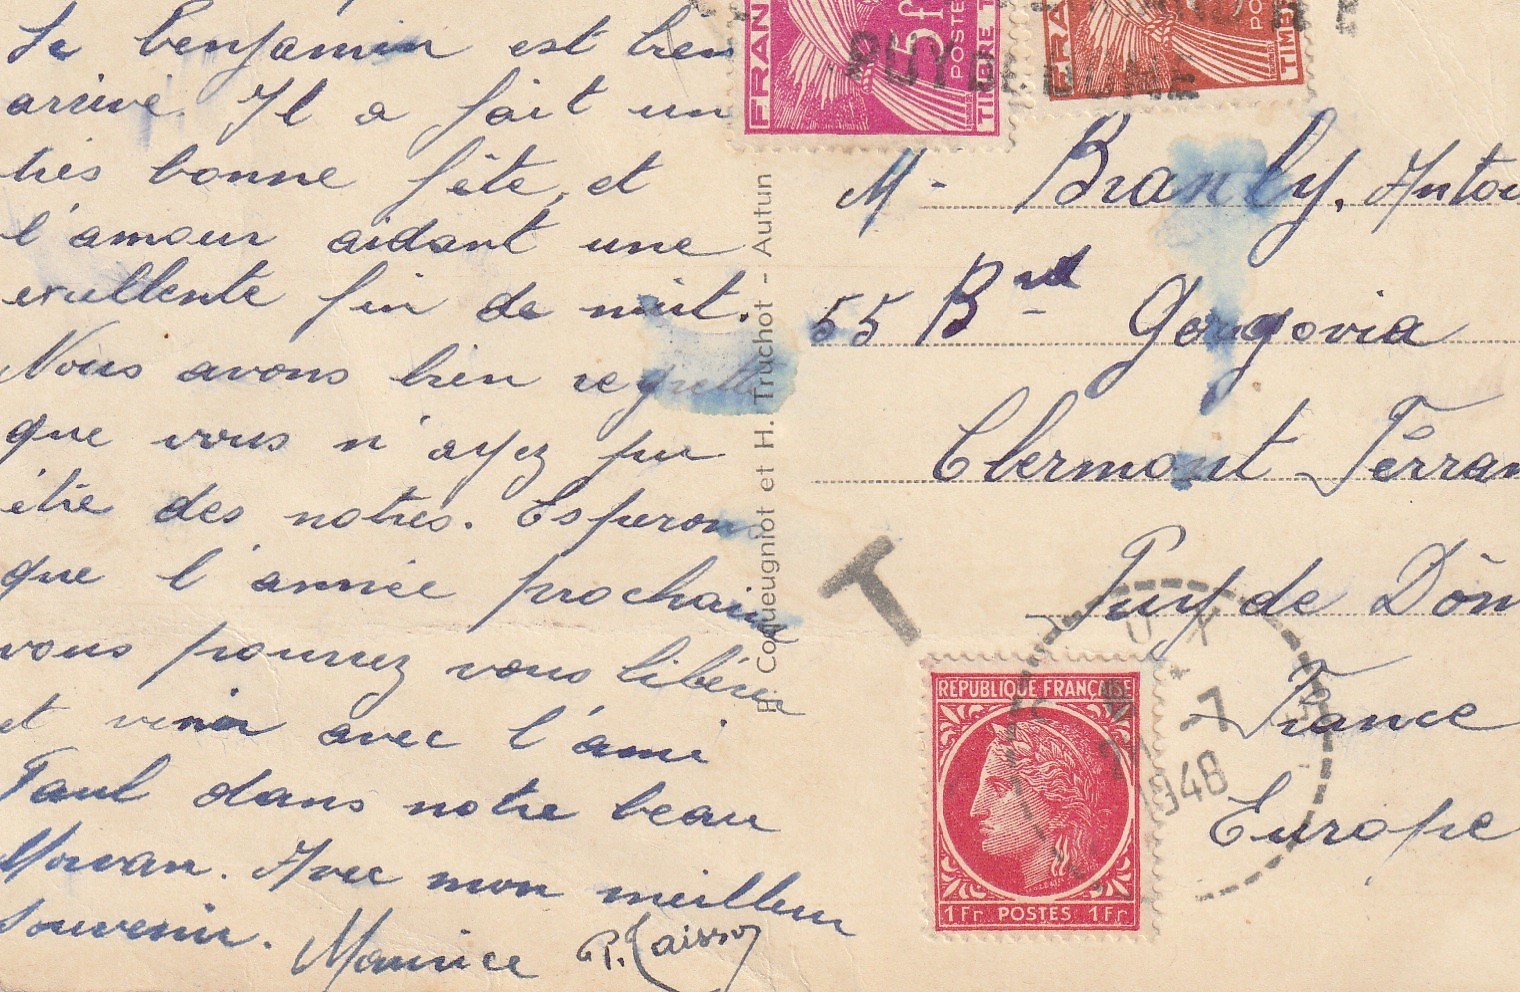 Le benjamin est bien
arrivé. Il a fait un
très bonne fête, et
l'amour aidant une
excellente fin de nuit.
Nous avons bien regretté
que vous n'ayez pu
être des notres. Esperons
que l'année prochaine
vous pourrez vous libérer
et venir avec l'ami
Paul dans notre beau
Morvan. Avec mon meilleur
souvenir. Maurice
Coqueugniot et H. Truchot - Autun
FRAN
5f
POSTES
TIMBRE T
FRA
PO
TIMB
PUY DE DOME
M. Branly, Antoi
55 Bvd Gergovia
Clermont Ferran
Puy de Dôm
France
Europe
T
RÉPUBLIQUE FRANÇAISE
1Fr POSTES 1Fr
-7
1948